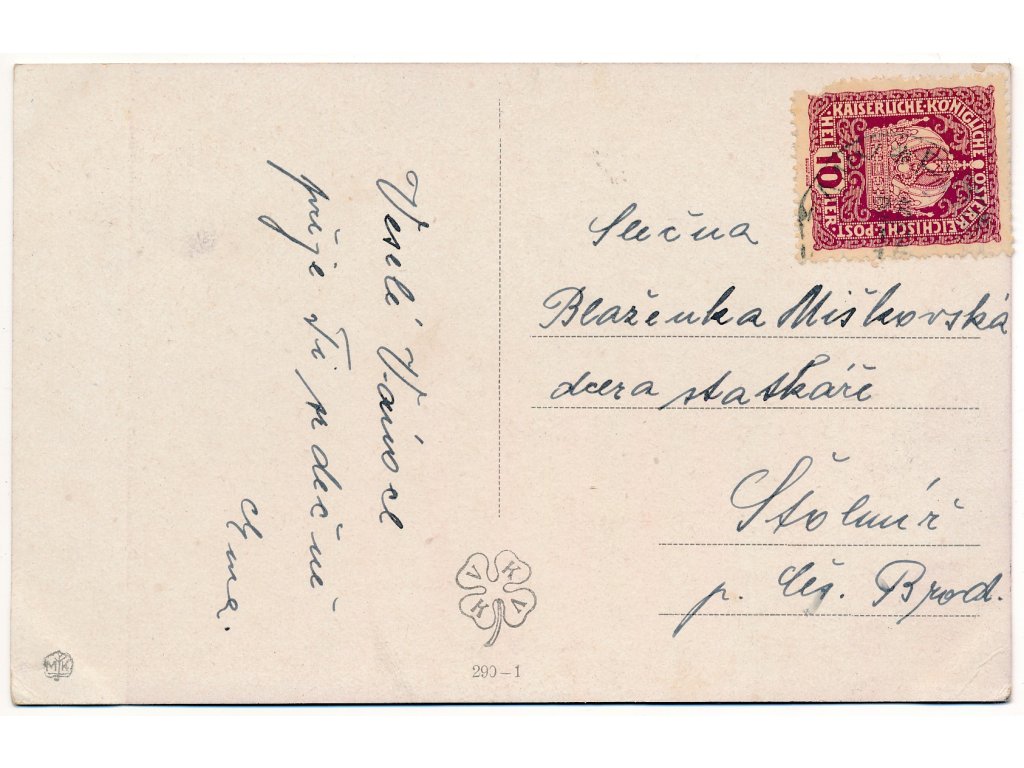 Veselé Vánoce
přeje Ti srdečně
Slečna
Blaženka Miškovská
dcera statkáře
Štolmíř
p. Čes. Brod.
KAISERLICHE KÖNIGLICHE ÖSTERREICHISCHE POST
10
HELLER
V K K V
290-1
MK